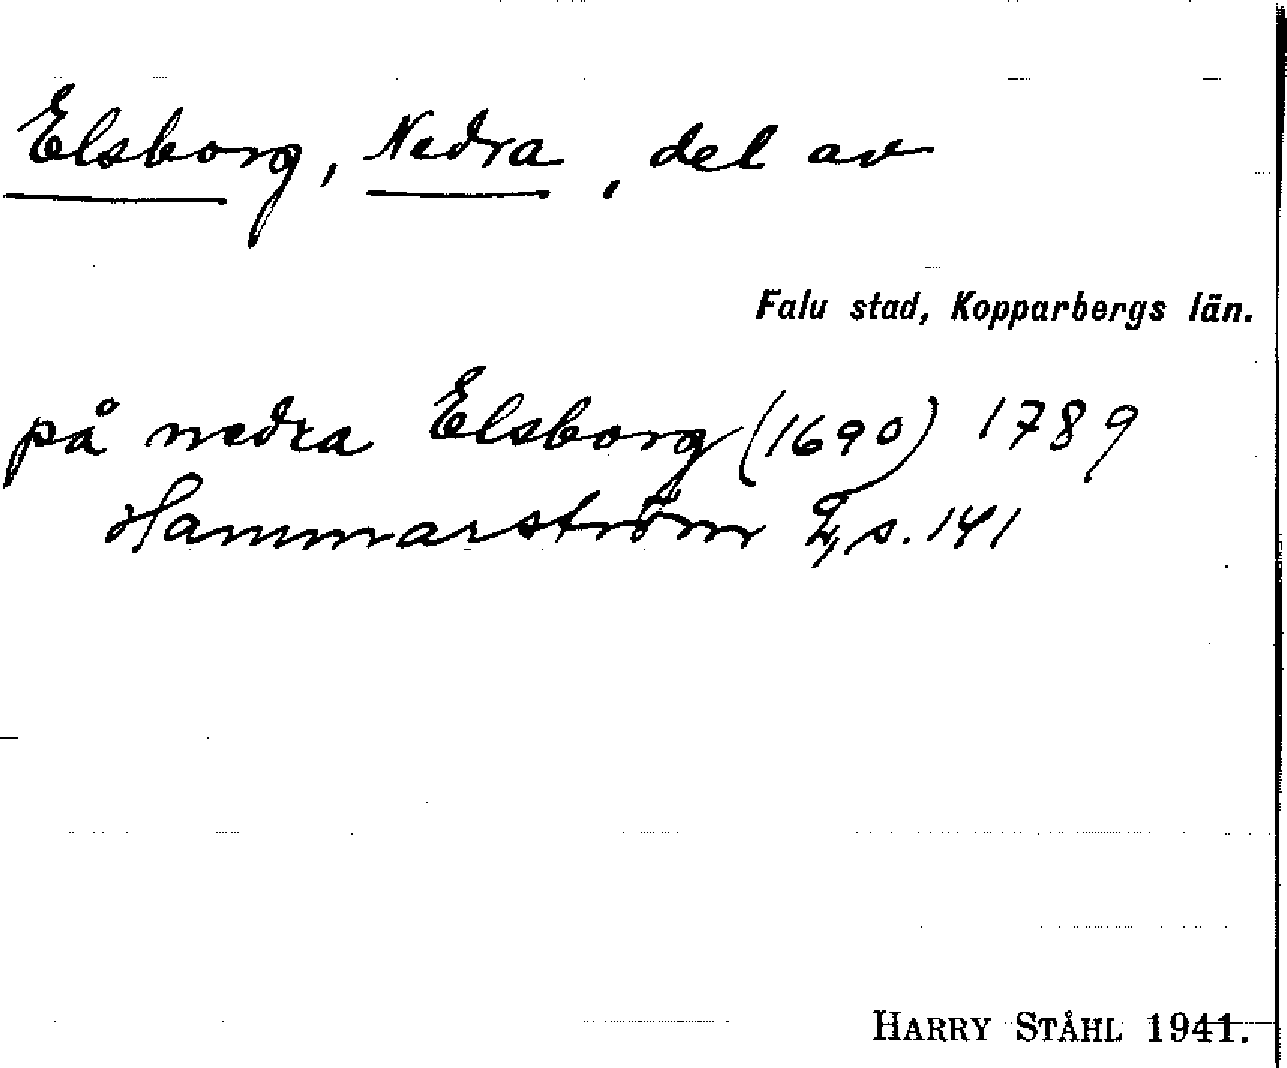 Elsborg, Nedra, del av
Falu stad, Kopparbergs län.
på nedra Elsborg (1690) 1789
Hammarström 2, s. 141
HARRY STÅHL 1941.